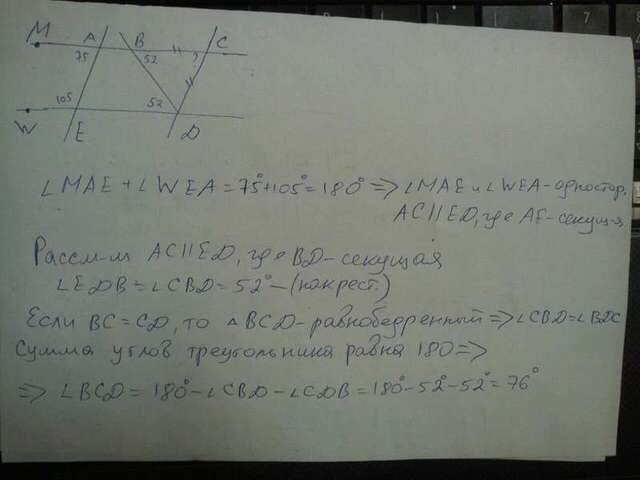 M A B C
75 52 ?
105 52
W E D
∠MAE + ∠WEA = 75°+105° = 180° => ∠MAE и ∠WEA - одностор.
AC || ED, где AE - секущ-я
Рассм-м AC || ED, где BD - секущая
∠EDB = ∠CBD = 52° - (накрест.)
Если BC = CD, то △BCD - равнобедренный => ∠CBD = ∠BDC
Сумма углов треугольника равна 180 =>
=> ∠BCD = 180° - ∠CBD - ∠CDB = 180° - 52° - 52° = 76°